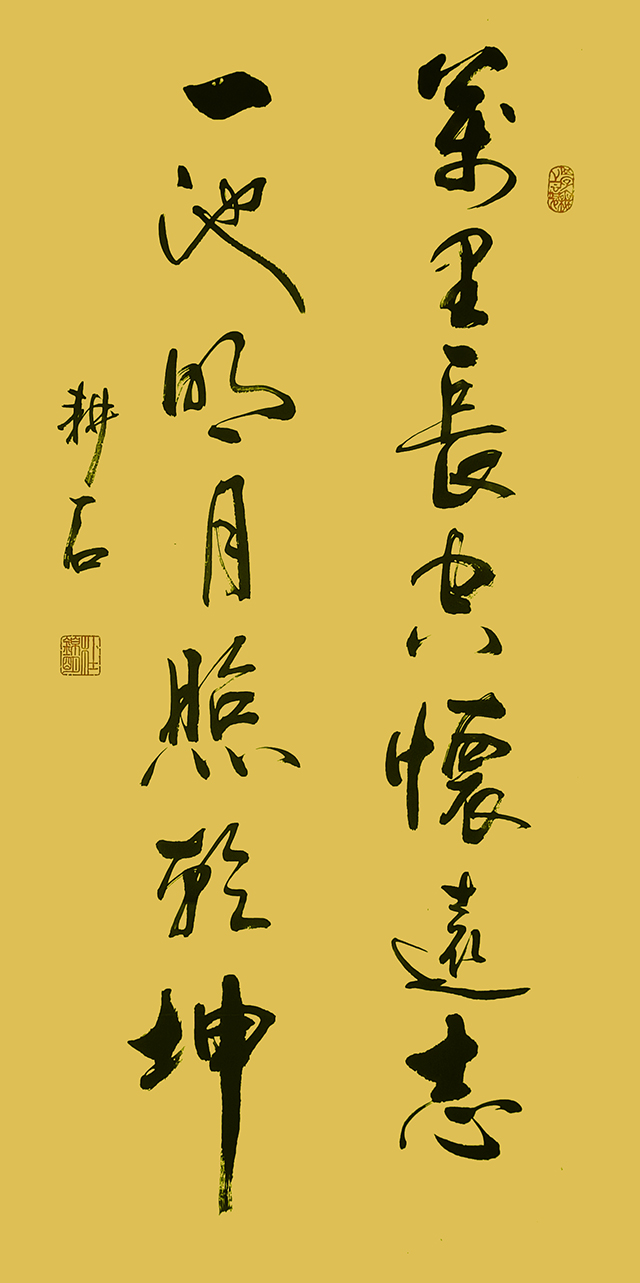 萬里長空懷遠志
一池明月照乾坤
耕石